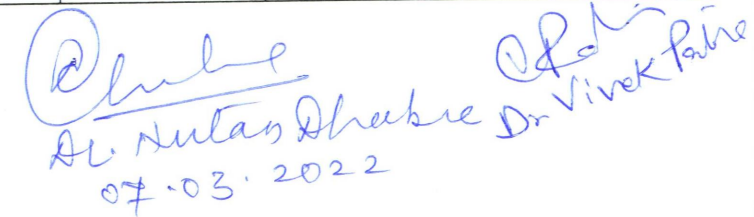 Dr. Nutan Dhabre
07.03.2022
Dr Vivek Patre